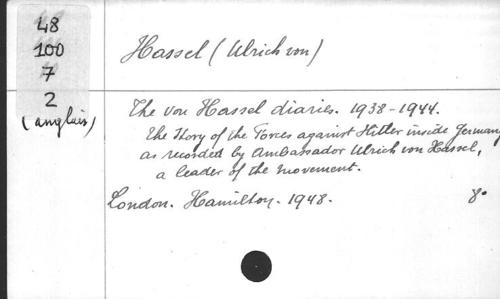 48
100
7
2
(anglais)
Hassel (Ulrich von)
The von Hassel diaries. 1938-1944.
the Story of the Forces against Hitler inside Germany
as recorded by Ambassador Ulrich von Hassel,
a leader of the movement.
London. Hamilton. 1948. 8°